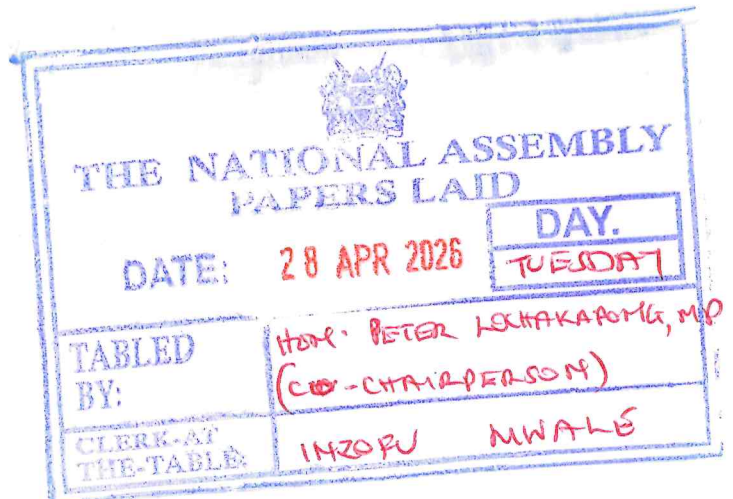 THE NATIONAL ASSEMBLY
PAPERS LAID
DATE: 28 APR 2026
DAY.
TUESDAY
TABLED BY:
HON. PETER LOCHAKAPONG, MP
(CO-CHAIRPERSON)
CLERK-AT THE-TABLE:
INZOFU MWALE